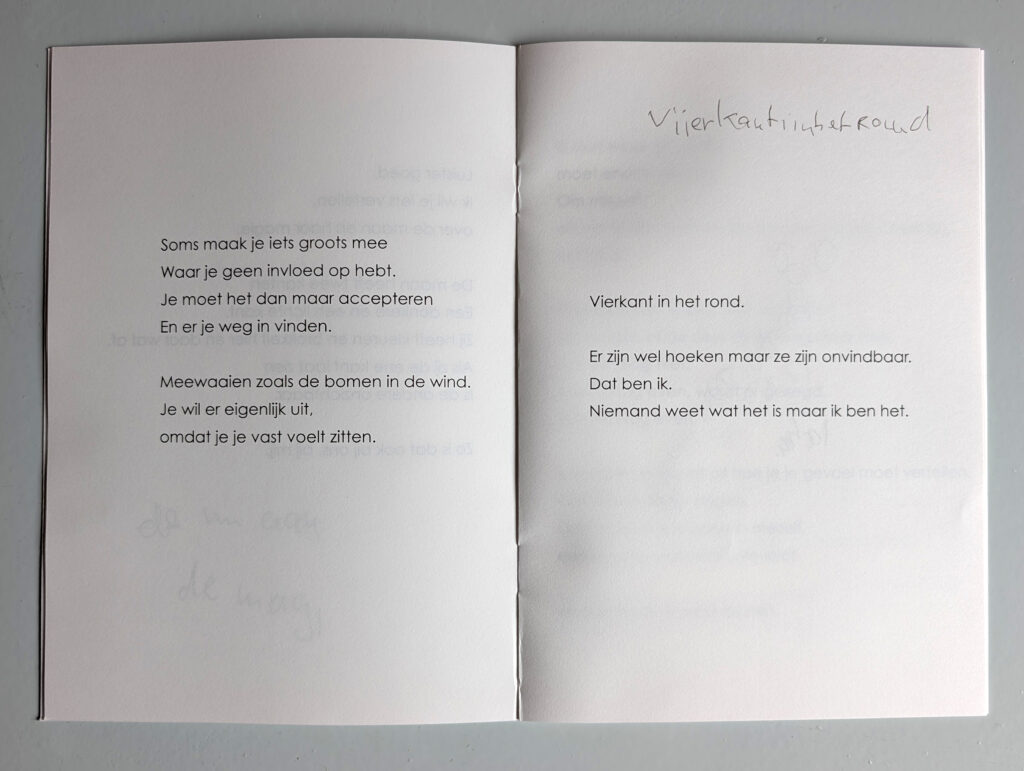 Soms maak je iets groots mee
Waar je geen invloed op hebt.
Je moet het dan maar accepteren
En er je weg in vinden.
Meewaaien zoals de bomen in de wind.
Je wil er eigenlijk uit,
omdat je je vast voelt zitten.
Vijerkantinhetround
Vierkant in het rond.
Er zijn wel hoeken maar ze zijn onvindbaar.
Dat ben ik.
Niemand weet wat het is maar ik ben het.